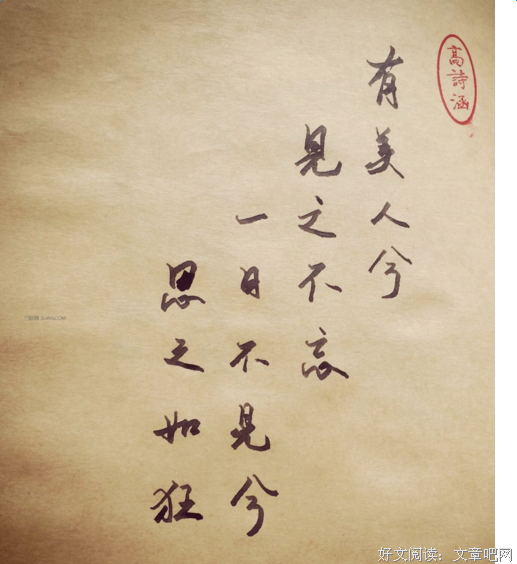 高詩涵
有美人兮
見之不忘
一日不見兮
思之如狂
好文阅读：文章吧网